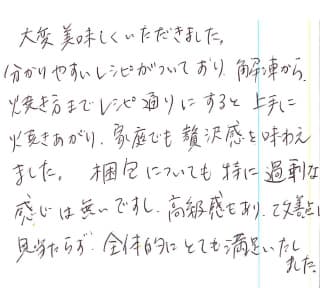 大変美味しくいただきました。
分かりやすいレシピがついており、解凍から、
焼き方までレシピ通りにすると上手に
焼きあがり、家庭でも贅沢感を味わえ
ました。梱包についても特に過剰な
感じは無いですし、高級感もあり、改善点は
見当たらず、全体的にとても満足いたし
ました。